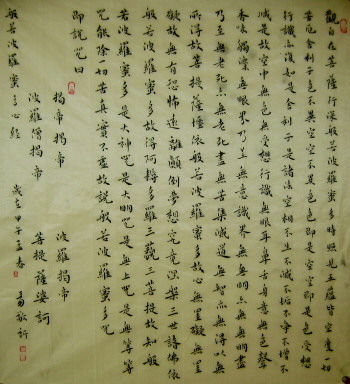 觀自在菩薩行深般若波羅蜜多時照見五蘊皆空度一切
苦厄舍利子色不異空空不異色色即是空空即是色受想
行識亦復如是舍利子是諸法空相不生不滅不垢不淨不增不
減是故空中無色無受想行識無眼耳鼻舌身意無色聲
香味觸法無眼界乃至無意識界無無明亦無無明盡
乃至無老死亦無老死盡無苦集滅道無智亦無得以無
所得故菩提薩埵依般若波羅蜜多故心無罣礙無罣
礙故無有恐怖遠離顛倒夢想究竟涅槃三世諸佛依
般若波羅蜜多故得阿耨多羅三藐三菩提故知般
若波羅蜜多是大神咒是大明咒是無上咒是無等等
咒能除一切苦真實不虛故說般若波羅蜜多咒
即說咒曰
揭帝揭帝 波羅揭帝
波羅僧揭帝 菩提薩婆訶
般若波羅蜜多心經 歲在甲午孟春